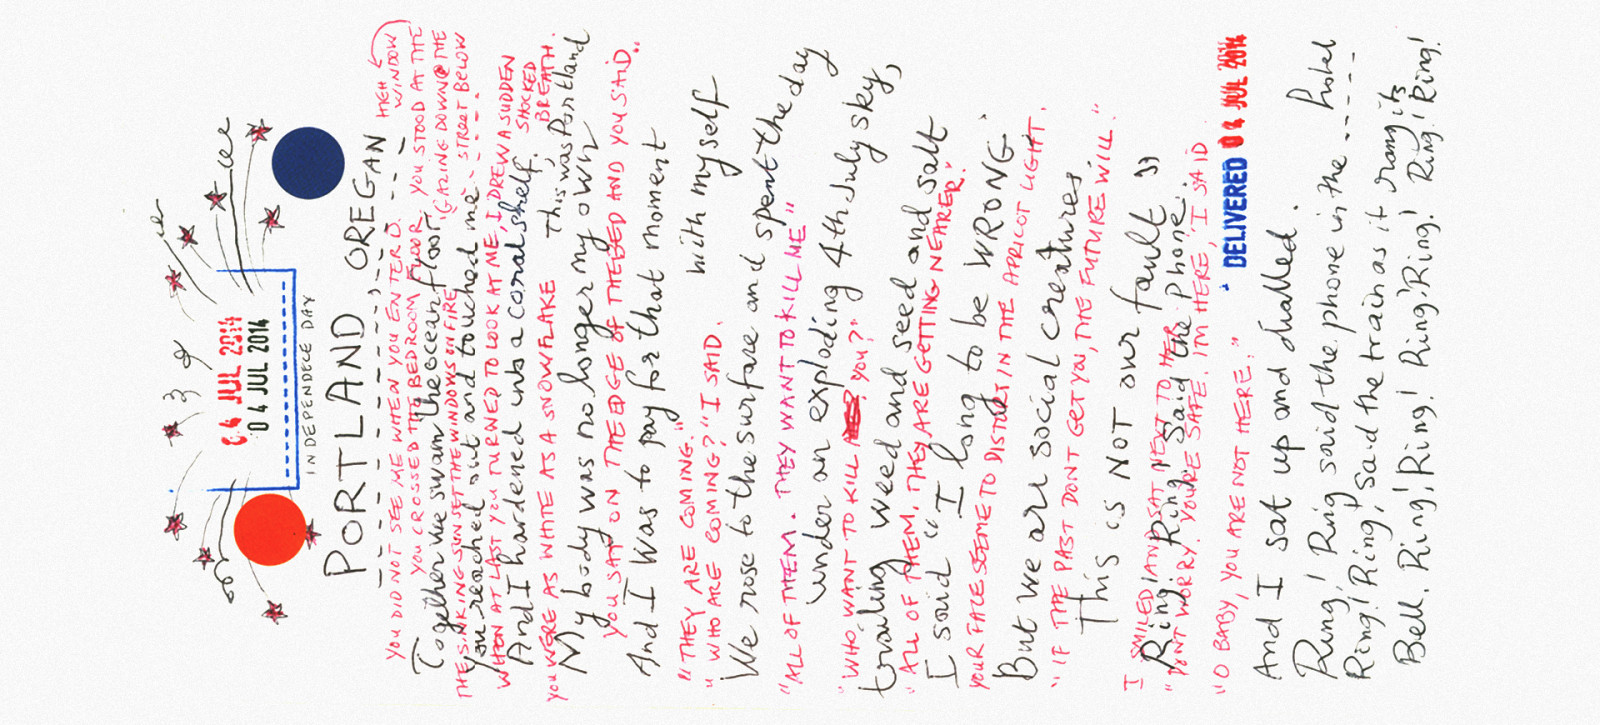 04 JUL 2014
04 JUL 2014
INDEPENDECE DAY
PORTLAND OREGAN
HIGH
YOU DID NOT SEE ME WHEN YOU ENTERD. WINDOW
YOU CROSSED THE BEDROOM FLOOR. YOU STOOD AT THE
Together we swam the ocean floor.
GAZING DOWN @ THE
THE SINKING SUN SET THE WINDOWS ON FIRE STREET BELOW
you reached out and touched me
WHEN AT LAST YOU TURNED TO LOOK AT ME, I DREW A SUDDEN
And I hardened into a coral shelf. SHOCKED
YOU WERE AS WHITE AS A SNOWFLAKE BREATH.
This was Portland
My body was no longer my own
YOU SAT ON THE EDGE OF THE BED AND YOU SAID.
And I was to pay for that moment
with myself
"THEY ARE COMING."
"WHO ARE COMING?" I SAID.
We rose to the surface and spent the day
"ALL OF THEM. THEY WANT TO KILL ME"
under an exploding 4th July sky,
"WHO WANT TO KILL YOU?"
trawling weed and seed and salt
"ALL OF THEM, THEY ARE GETTING NEARER."
I said "I long to be WRONG.
YOUR FACE SEEME TO DISTORT, IN THE APRICOT LIGHT.
But we are social creatures
"IF THE PAST DONT GET YOU, THE FUTURE WILL."
This is NOT our fault"
I SMILED AND SAT NEXT TO HER
Ring Ring! Said the phone.
"DONT WORRY. YOURE SAFE. IM HERE, I SAID
"O BABY, YOU ARE NOT HERE."
DELIVERED 04 JUL 2014
And I sat up and dialled.
Ring! Ring said the phone in the .... hotel
Ring! Ring! Said the train as it rang its
Bell. Ring! Ring! Ring! Ring! Ring! Ring! Ring!